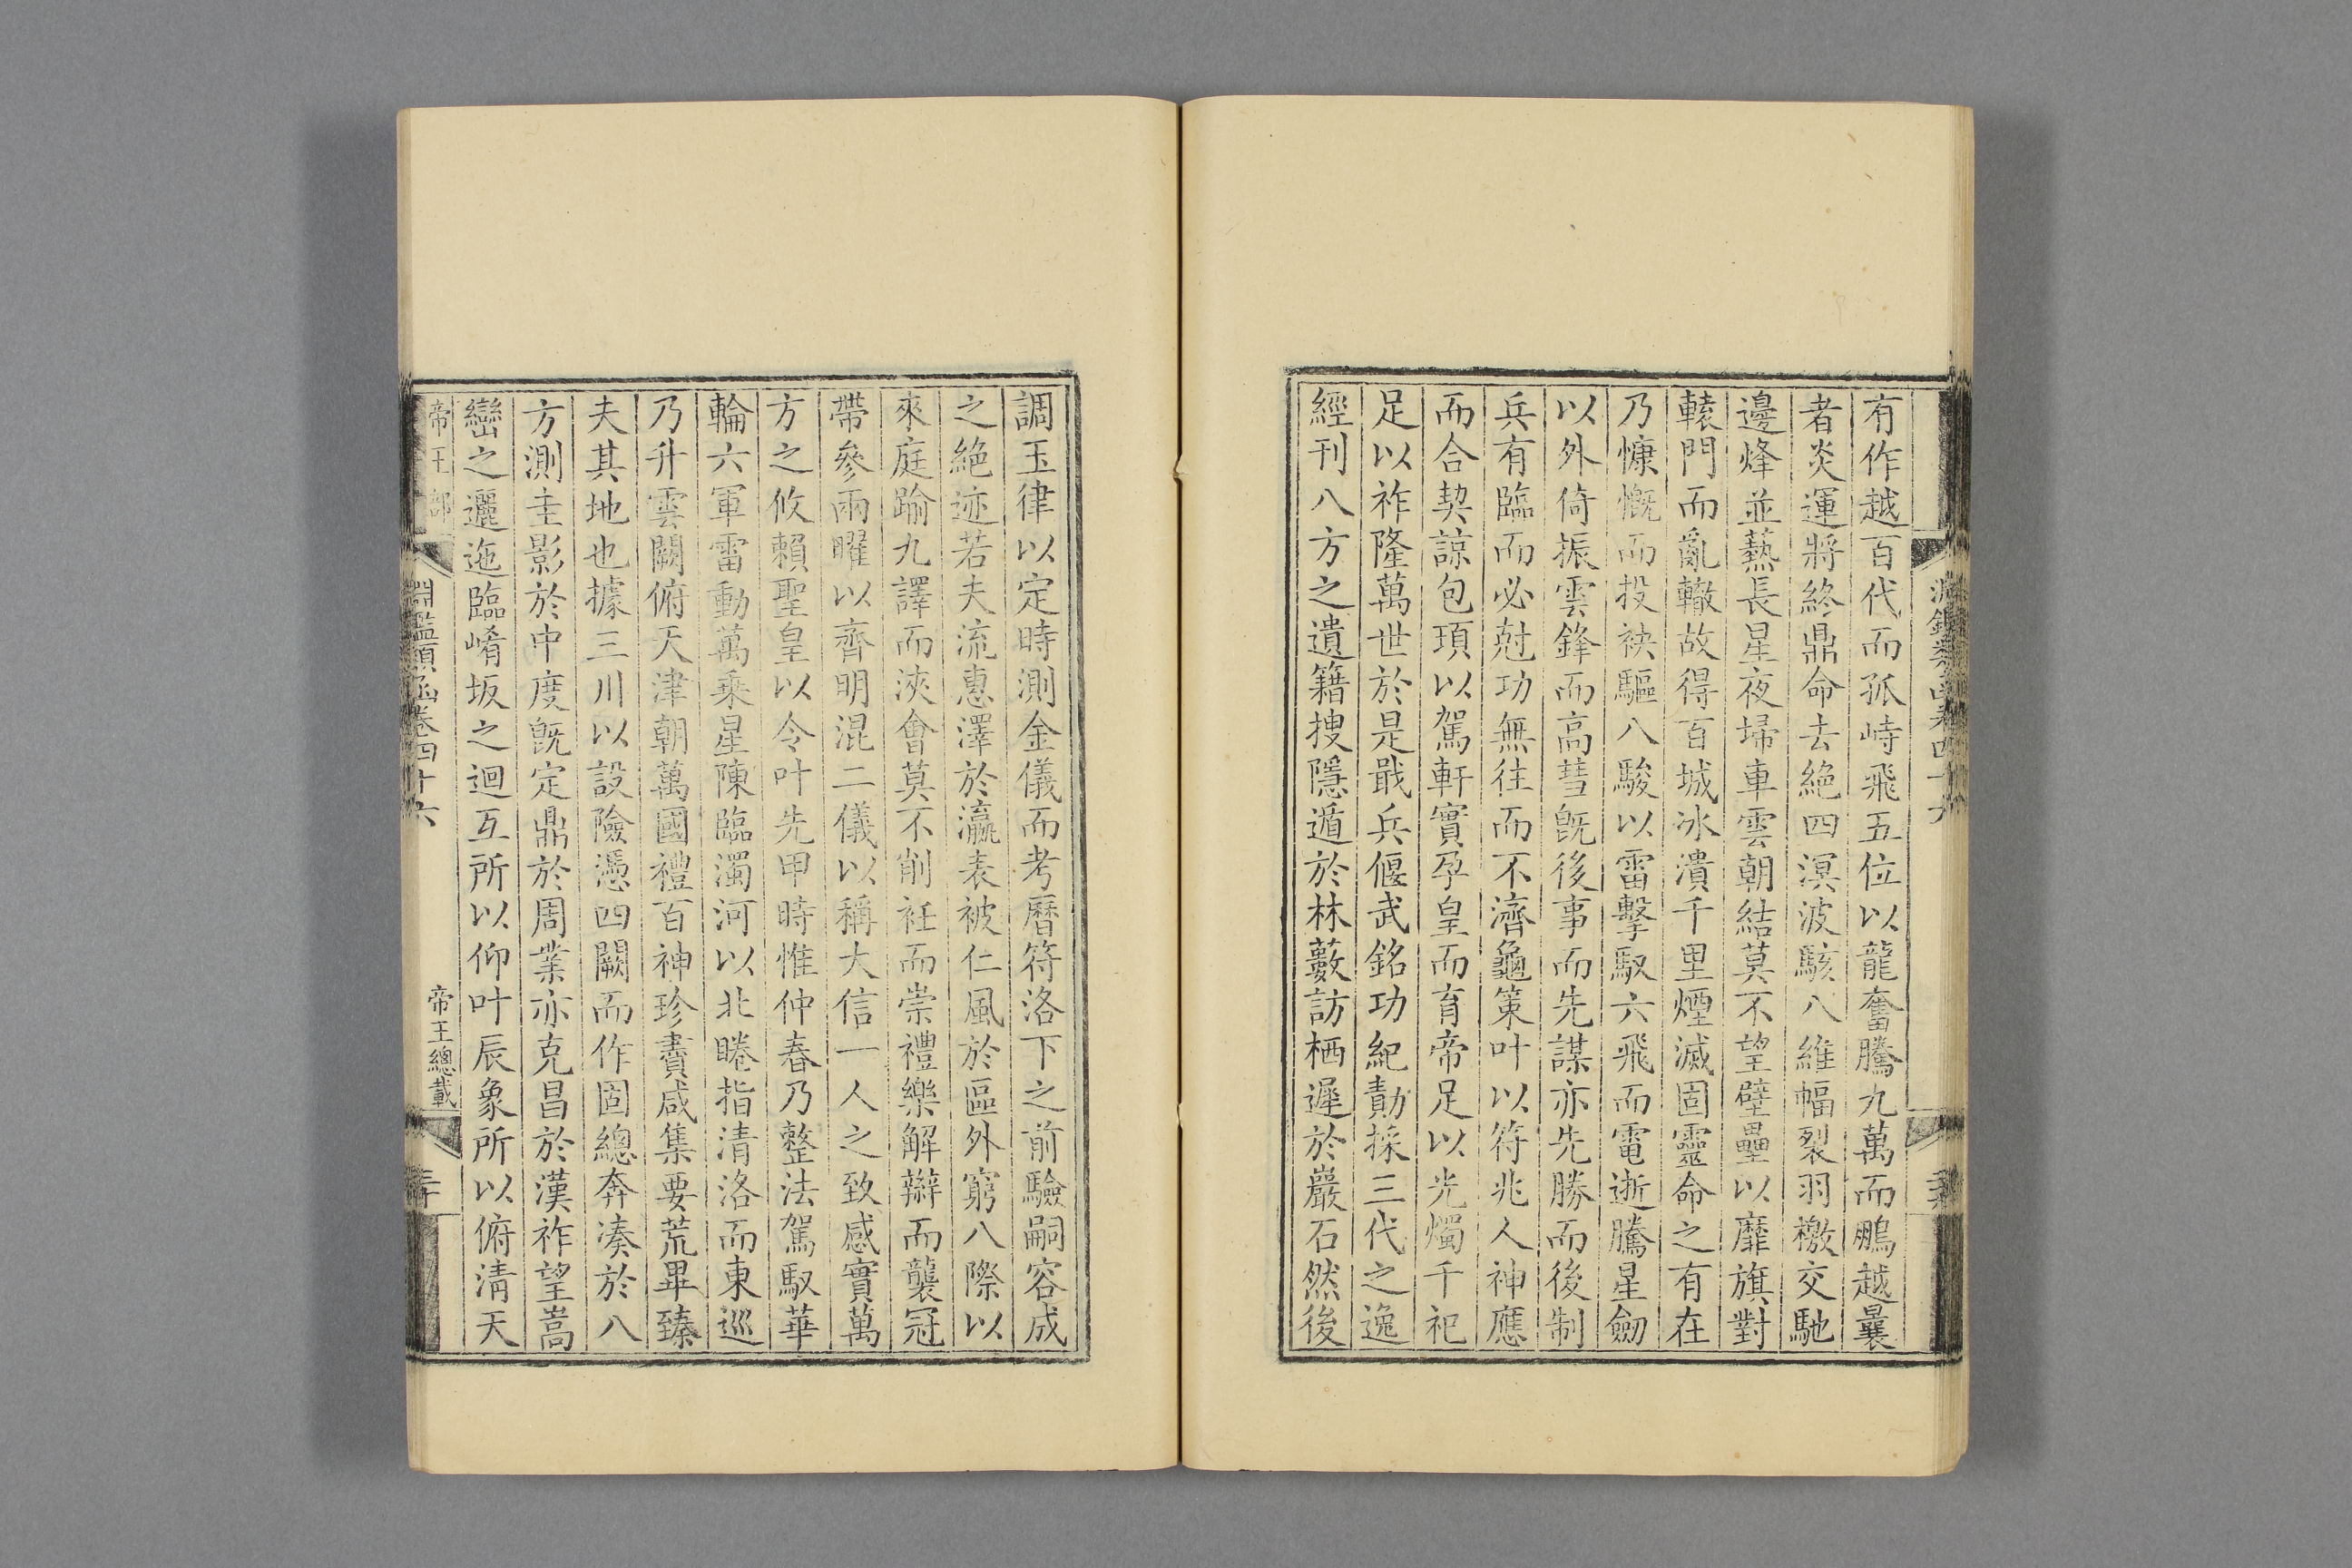 有作越百代而孤峙飛五位以龍奮騰九萬而鵬越曩
者炎運將終鼎命去絕四溟波駭八維幅裂羽檄交馳
邊烽並爇長星夜埽車雲朝結莫不望壁壘以靡旗對
轅門而亂轍故得百城冰潰千里煙滅固靈命之有在
乃慷慨而投袂驅八駿以雷擊馭六飛而電逝騰星劒
以外倚振雲鋒而高彗旣後事而先謀亦先勝而後制
兵有臨而必尅功無往而不濟龜策叶以符兆人神應
而合契諒包頊以駕軒實孕皇而育帝足以光燭千祀
足以祚隆萬世於是戢兵偃武銘功紀勣採三代之逸
經刊八方之遺籍搜隱遁於林藪訪栖遲於巖石然後
調玉律以定時測金儀而考曆符洛下之前驗嗣容成
之絕迹若夫流惠澤於瀛表被仁風於區外窮八際以
來庭踰九譯而浹會莫不削衽而崇禮樂解辮而襲冠
帶參兩曜以齊明混二儀以稱大信一人之致感實萬
方之攸賴聖皇以令叶先甲時惟仲春乃整法駕馭華
輪六軍雷動萬乘星陳臨濁河以北睠指清洛而東巡
乃升雲闕俯天津朝萬國禮百神珍賮咸集要荒畢臻
夫其地也據三川以設險憑四闕而作固總奔湊於八
方測圭影於中度旣定鼎於周業亦克昌於漢祚望嵩
巒之邐迤臨崤坂之迴互所以仰叶辰象所以俯清天
帝王部
淵鑑類函卷四十六
帝王總載